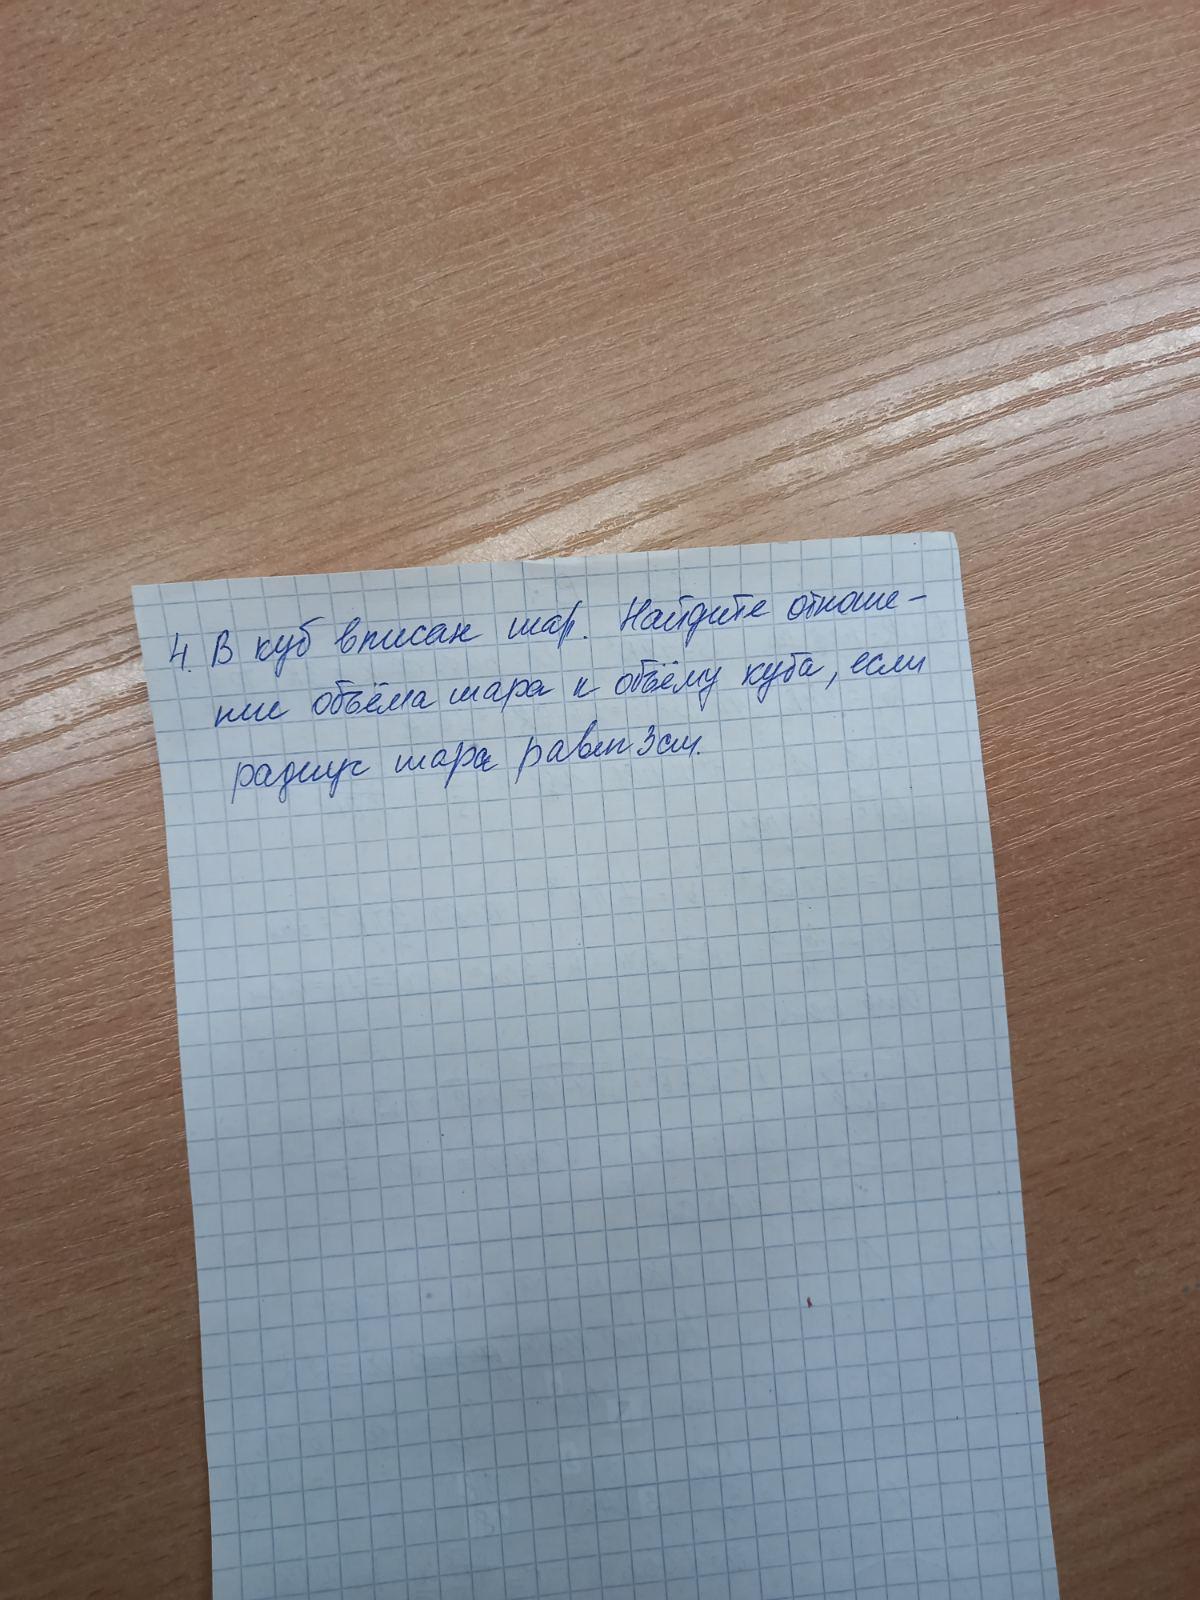 4. В куб вписан шар. Найдите отноше-
ние объёма шара к объёму куба, если
радиус шара равен 3см.